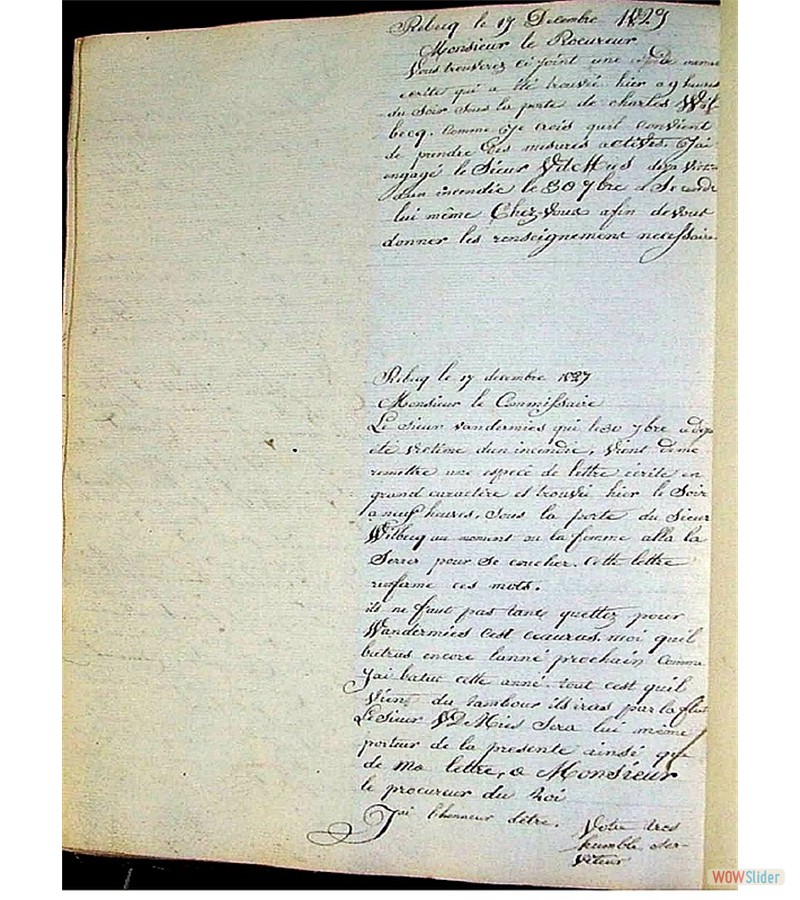 Rebecq le 17 Decembre 1827
Monsieur le Procureur
Vous trouverez ci joint une
ecrite qui a été trouvée hier a 9 heures
du Soir Sous la porte de charles Wil
becq. Comme Je crois quil convient
de prendre des mesures actives. J'ai
engagé le Sieur VdMies deja victi
dun incendie le 30 7bre a Se rendre
lui même Chez-Vous afin de vous
donner les renseignement necessaire
Rebecq le 17 decembre 1827
Monsieur le Commissaire
Le Sieur vandermies qui le 30 7bre a deja
été victime dun incendie, vient de me
remettre une espece de lettre écrite en
grand caractère et trouvée hier le Soir
a neuf heures. Sous la porte du Sieur
Wilbecq au moment ou la femme alla la
Serrer pour Se coucher. Cette lettre
renferme ces mots.
ils ne faut pas tant quettez pour
Vandermies C'est moi quil
batras encore lanné prochain Comme
J'ai batue cette anné. tout cest quil
vient du tambour ils iras par la flut
Le Sieur VDMies Sera lui même
porteur de la presente ainsé que
de Ma lettre, a Monsieur
le procureur du Roi
J'ai l'honneur d'être. Votre tres
humble Ser-
viteur
WOWSlider